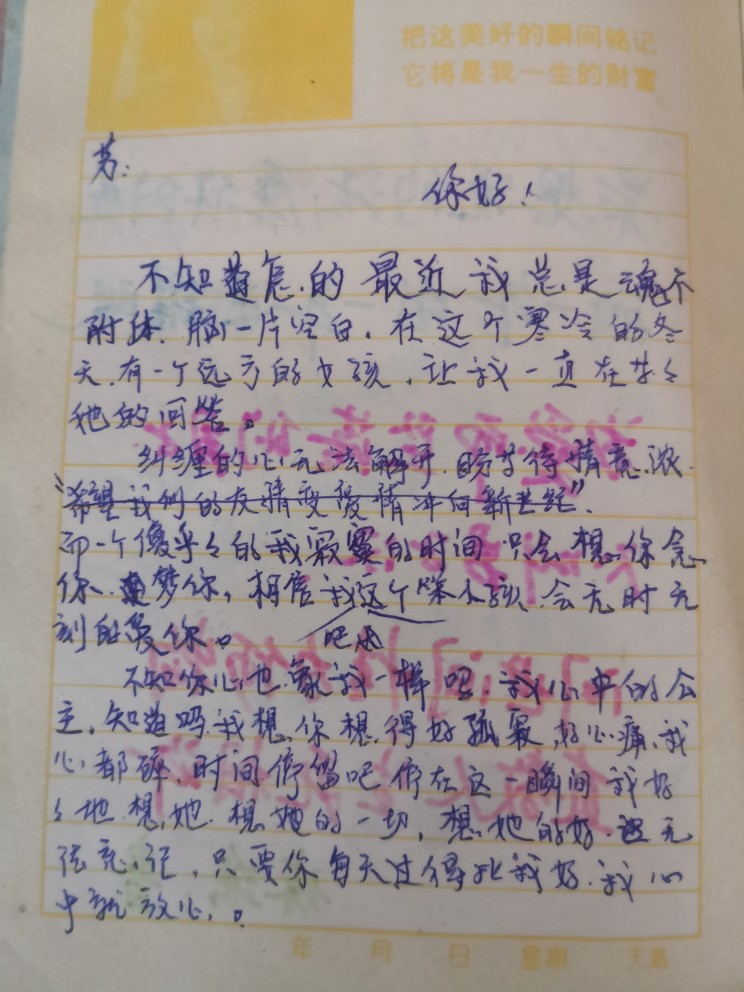 把这美好的瞬间铭记
它将是我一生的财富
芳:
你好!
不知道怎的最近我总是魂不
附体.脑一片空白.在这个寒冷的冬
天.有一个远方的女孩.让我一直在等々
他的回答。
纠缠的心无法解开.盼等待情意浓.
“希望我们的友情变爱情冲向新世纪”.
而一个傻乎々的我寂寞的时间只会想你念
你.梦你,相信我这个笨小孩会无时无
刻的爱你。吧
不知你心也象我一样吧.我心中的公
主.知道吗我想你想得好孤寂,好心痛.我
心都碎.时间停留吧停在这一瞬间我好
々地想她.想她的一切,想她的好.无
法忘记,只要你每天过得比我好.我心
中就放心.。
年 月 日 星期 天气